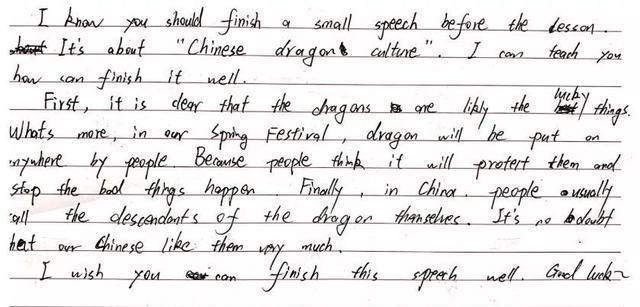 I know you should finish a small speech before the lesson.
It's about "Chinese dragon culture". I can teach you
how can finish it well.
First, it is clear that the dragons are likly the lucky things.
Whats more, in our Spring Festival, dragon will be put on
nywhere by people. Because people think it will protert them and
stop the bad things happen. Finally, in China. people usually
all the descendants of the dragon themselves. It's no doubt
hat our Chinese like them very much.
I wish you can finish this speech well. Good luck~